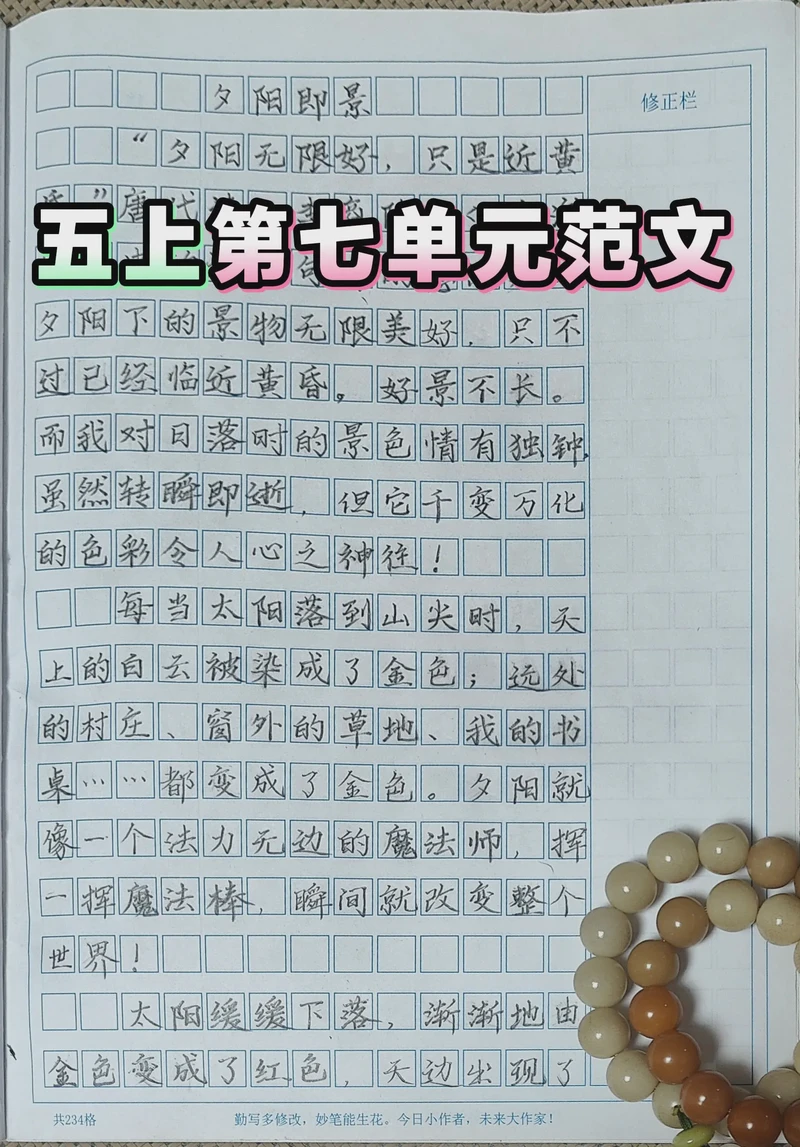 夕阳即景
修正栏
“夕阳无限好，只是近黄
”唐代
五上第七单元范文
夕阳下的景物无限美好，只不
过已经临近黄昏。好景不长。
而我对日落时的景色情有独钟，
虽然转瞬即逝，但它千变万化
的色彩令人心之神往！
每当太阳落到山尖时，天
上的白云被染成了金色；远处
的村庄、窗外的草地、我的书
桌……都变成了金色。夕阳就
像一个法力无边的魔法师，挥
一挥魔法棒，瞬间就改变整个
世界！
太阳缓缓下落，渐渐地由
金色变成了红色，天边出现了
共234格
勤写多修改，妙笔能生花。今日小作者，未来大作家！